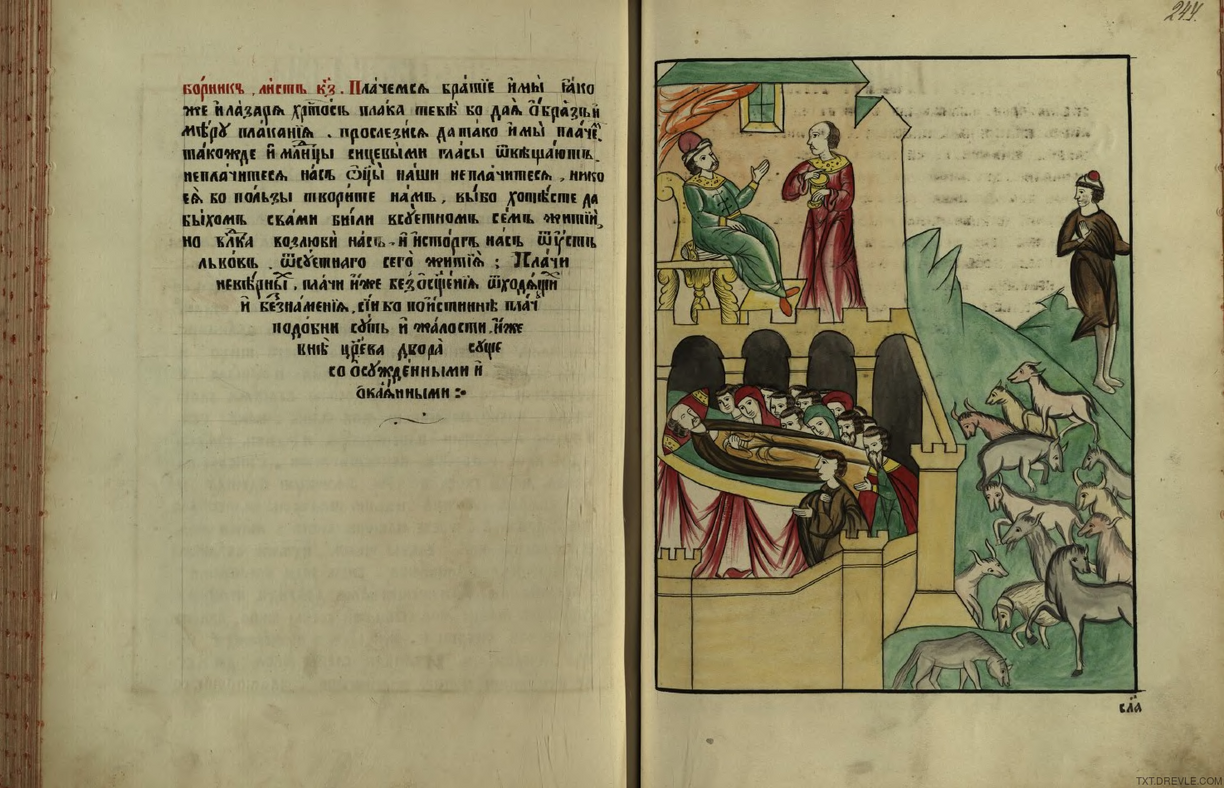 бо́рникъ, ли́стъ к҃з. Пла́чемсѧ бра́тїе и҆мы̀ ꙗ҆́ко
же и҆ла́зарѧ хрⷭ҇то́съ пла́ка тебѣ̀ бо даѧ̀ ѻ҆́бразъ и҆
мѣ́рꙋ пла́канїѧ. прослези́сѧ да та́ко и҆мы̀ пла́чеⷨ.
та́кожде и҆ млⷣнцы сицевы́ми гла́сы ѿвѣща́ютъ.
непла́читесѧ на́съ ѻ҆тцы̀ на́ши не пла́читесѧ, нико
еѧ̀ бо по́льзы твори́те на́мъ, вы́ бо хотѣ́сте да
бы́хомъ ска́ми бы́ли всꙋ́етномъ се́мъ житїѝ,
но влⷣка возлюбѝ на́съ и҆ исто́ргъ на́съ ѿꙋ҆́стъ
льво́въ. ѿсꙋ́етнаго сего̀ житїѧ̀; Пла́чи
невѣ́рнїи, пла́чи и҆́же без̾ ѡ҆сщ҃е́нїѧ ѿходѧ́щїи
и҆ без̾зна́менїѧ, сїи́ бо пои́стиннѣ пла́чꙋ
подо́бни сꙋ́ть и҆ жа́лости, и҆́же
внѣ̀ цр҃е́ва двора̀ сꙋ́ще
со ѡ҆сꙋжде́нными и҆
ѻ҆каѧ́нными:
244.
сл҃а
TXT.DREVLE.COM